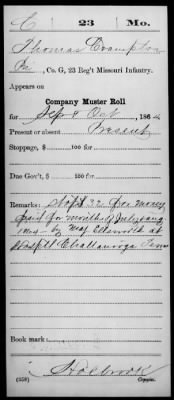 C 23 Mo.
Thomas Crampton
Co. G, 23 Reg't Missouri Infantry.
Appears on
Company Muster Roll
for Sep & Oct, 1864
Present or absent Present
Stoppage, $ 100 for
Due Gov't, $ 100 for
Remarks: Stopd 32 for money
paid for months of July & aug
1864 by Maj Ellsworth at
Hosptl Chattanooga Tenn
Book mark:
Holbrook
(358) Copyist.